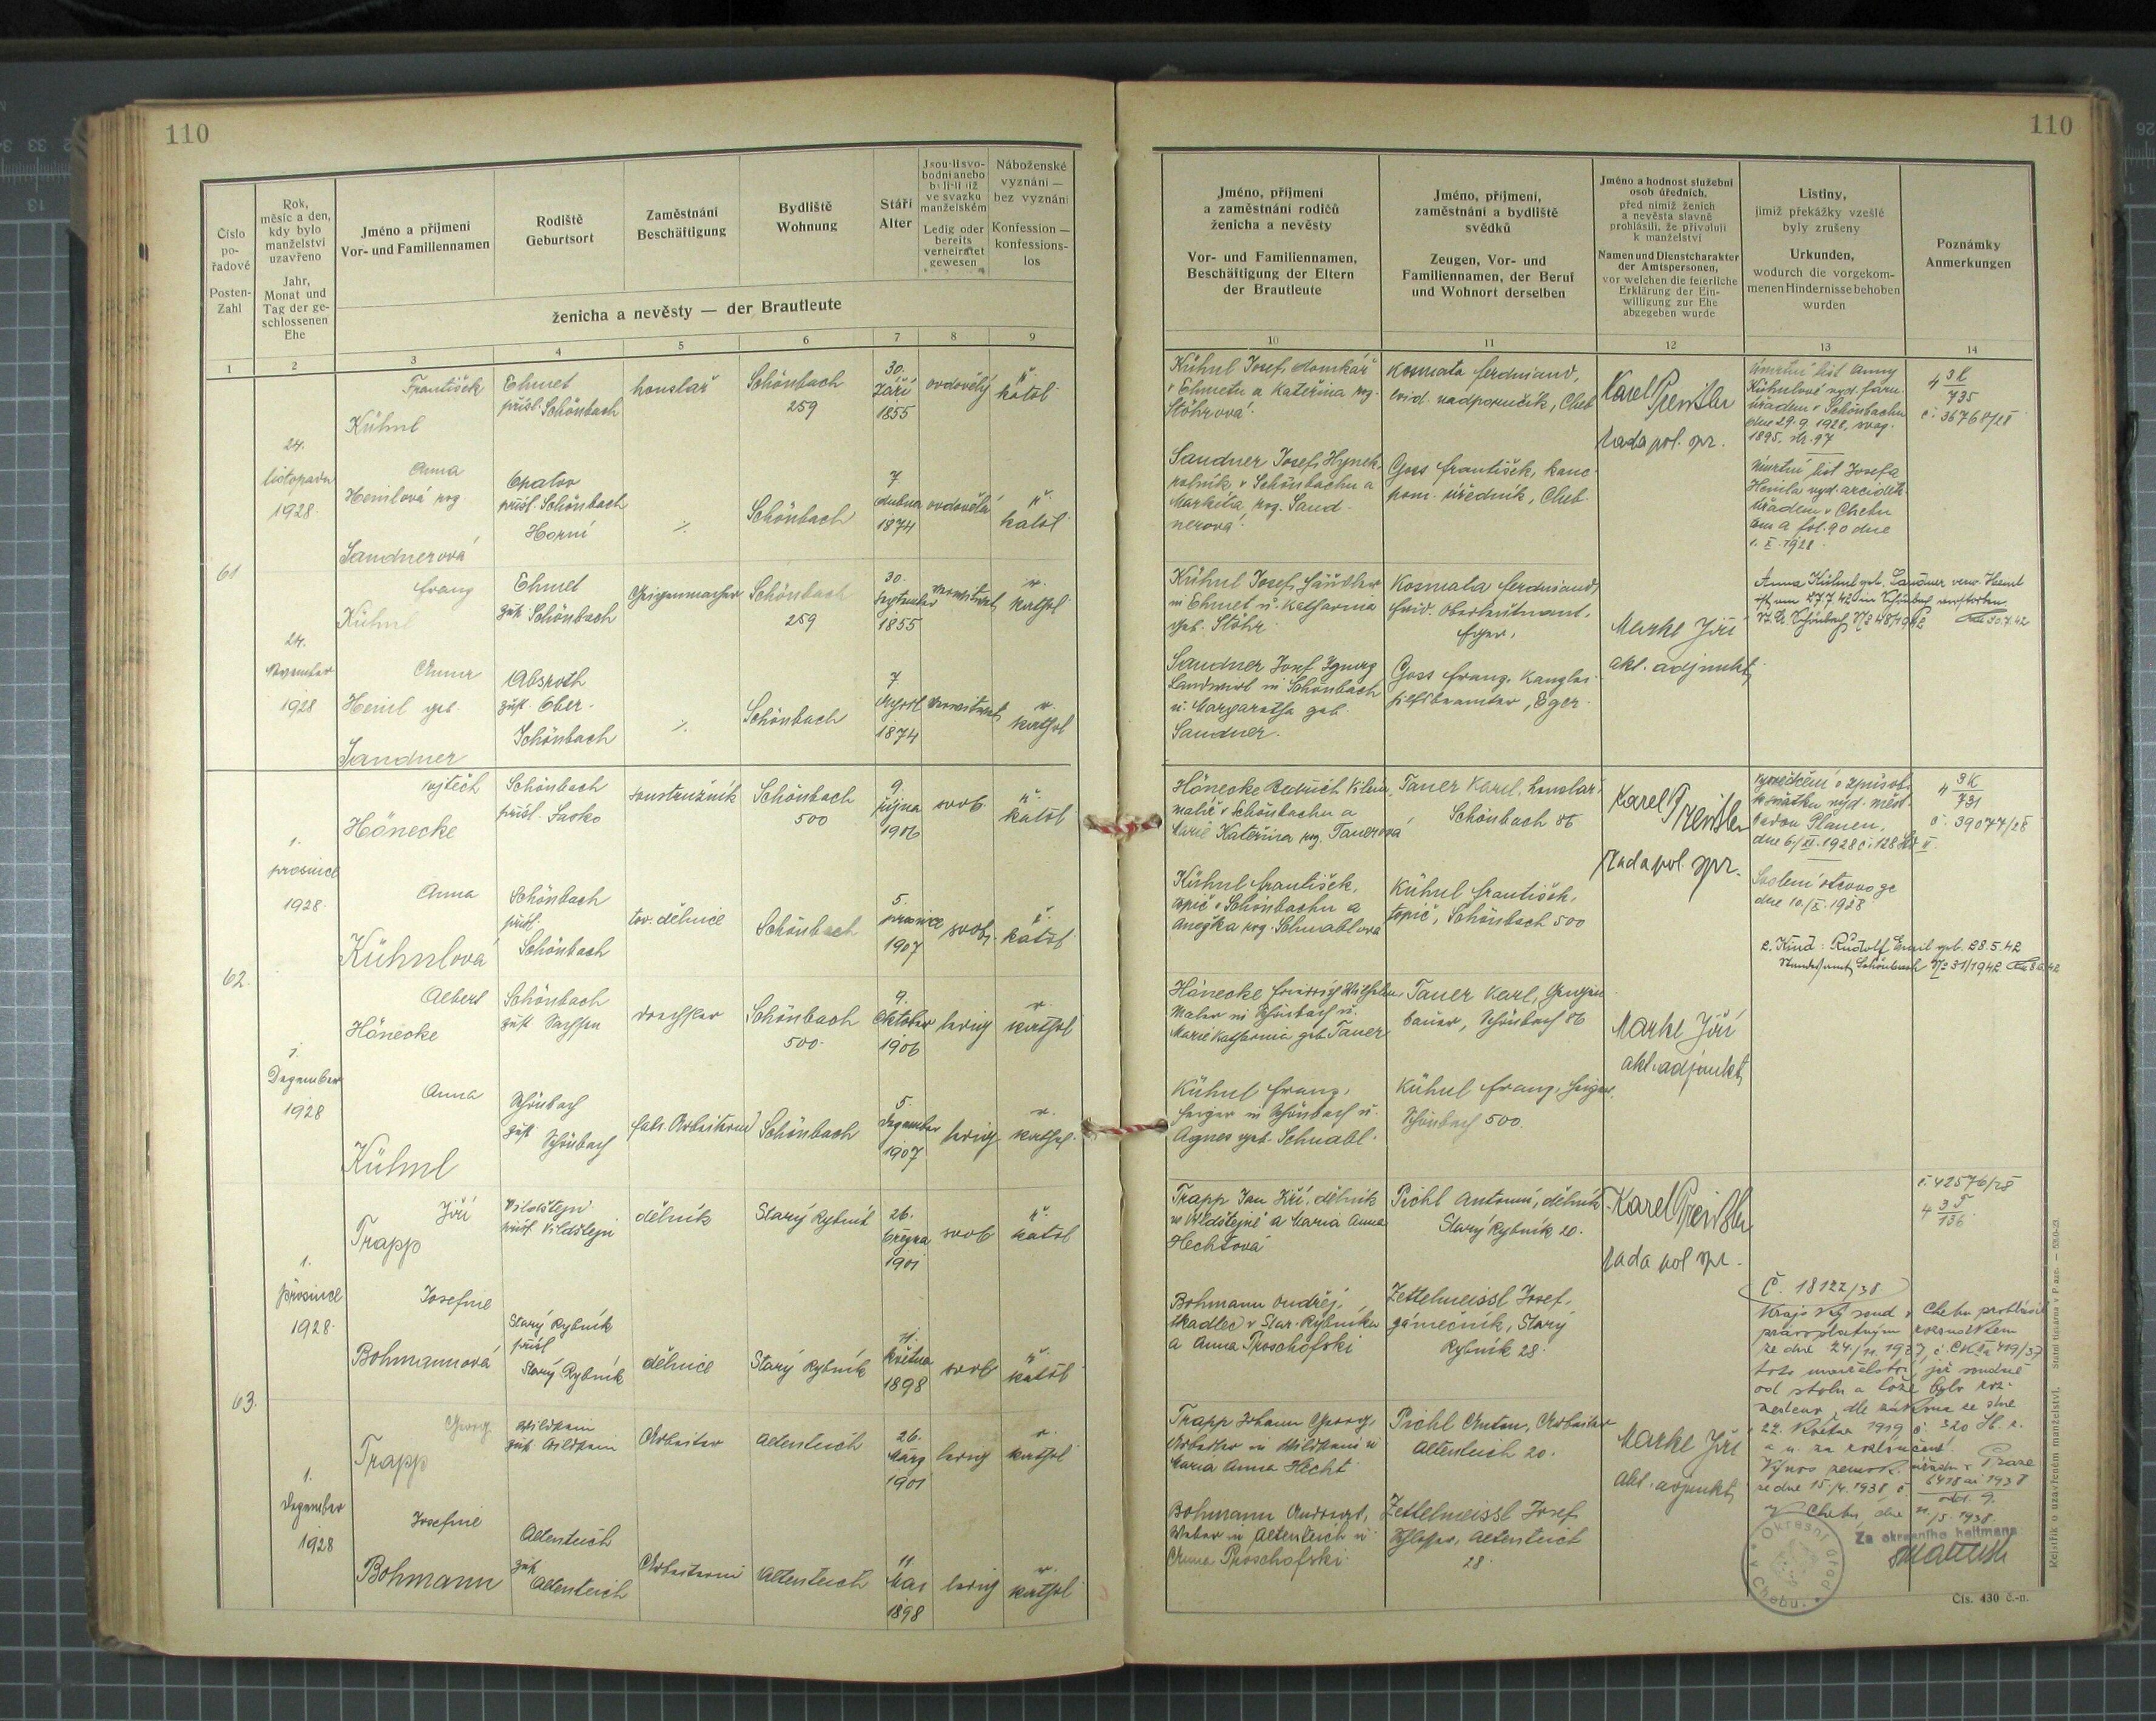 110
110
Číslo pořadové
Posten-Zahl
Rok, měsíc a den, kdy bylo manželství uzavřeno
Jahr, Monat und Tag der geschlossenen Ehe
Jméno a příjmení
Vor- und Familiennamen
Rodiště
Geburtsort
Zaměstnání
Beschäftigung
Bydliště
Wohnung
Stáří
Alter
Ledig oder bereits verheiratet gewesen
Náboženské vyznání — bez vyznání
Konfession — konfessionslos
ženicha a nevěsty — der Brautleute
1 2 3 4 5 6 7 8 9
61
24.
listopadu
1928
František
Kühnl
Ehmet
přísl. Schönbach
houslař
Schönbach
259
30.
září
1855
ovdovělý
ř. katol
Anna
Heinlová roz.
Sandnerová
Opatov
přísl. Schönbach
Horní
Schönbach
7
dubna
1874
ovdovělá
ř. katol
24.
November
1928
Franz
Kühnl
Ehmet
zust. Schönbach
Geigenmacher
Schönbach
259
30.
September
1855
verwitwet
r. kathol
Anna
Heinl geb.
Sandner
Absroth
zust. Ober-
Schönbach
Schönbach
7
April
1874
verwitwet
r. kathol
62.
1.
prosince
1928
Vojtěch
Hönecke
Schönbach
přísl. Sasko
soustružník
Schönbach
500
9.
října
1906
svob.
ř. katol
Anna
Kühnlová
Schönbach
přísl.
Schönbach
tov. dělnice
Schönbach
5.
prosince
1907
svob.
ř. katol
1.
Dezember
1928
Albert
Hönecke
Schönbach
zust Sachsen
Drechsler
Schönbach
500.
9.
Oktober
1906
ledig
r. kathol
Anna
Kühnl
Schönbach
zust
Schönbach
fabr. Arbeiterin
Schönbach
5.
Dezember
1907
ledig
r. kathol.
63.
1.
prosince
1928
Jiří
Trapp
Vildštejn
přísl Vildštejn
dělník
Starý Rybník
26.
března
1901
svob
ř. katol
Josefine
Bohmannová
Starý Rybník
přísl
Starý Rybník
dělnice
Starý Rybník
11.
května
1898
svob
ř. katol
1.
Dezember
1928
Georg
Trapp
Wildstein
zust. Wildstein
Arbeiter
Altenteich
26.
März
1901
ledig
r. kathol
Josefine
Bohmann
Altenteich
zust
Altenteich
Arbeiterin
Altenteich
11
Mai
1898
ledig
r. kathol
Jméno, příjmení a zaměstnání rodičů ženicha a nevěsty
Vor- und Familiennamen, Beschäftigung der Eltern der Brautleute
Jméno, příjmení, zaměstnání a bydliště svědků
Zeugen, Vor- und Familiennamen, der Beruf und Wohnort derselben
Jméno a hodnost služební osob úředních, před nimiž ženich a nevěsta slavně prohlásili, že přivolují k manželství
Namen und Dienstcharakter der Amtspersonen, vor welchen die feierliche Erklärung der Einwilligung zur Ehe abgegeben wurde
Listiny, jimiž překážky vzešlé byly zrušeny
Urkunden, wodurch die vorgekommenen Hindernisse behoben wurden
Poznámky
Anmerkungen
10 11 12 13 14
Kühnl Josef, domkář
v Ehmetu a Kateřina roz.
Stöhrová
Kosmata Ferdinand,
evid. nadporučík, Cheb
Karel Preissler
rada pol. spr.
Úmrtní list Anny
Kühnlové vyd. farn.
úřadem v Schönbachu
dne 29.9.1928, svaz.
1895, str. 97
4 3k/735
č. 36768/28
Sandner Josef, Hynek,
rolník v Schönbachu a
Markéta roz. Sand-
nerová
Goss František, kanc.
pom. úředník, Cheb.
Úmrtní list Josefa
Heinla vyd. arciděk.
úřadem v Chebu
fol. 90 dne
1.X.1928
Kühnl Josef, Häusler
in Ehmet u. Katharina
geb. Stöhr
Kosmata Ferdinand,
Evid. Oberleutnant,
Eger,
Marke Jiří
akt. adjunkt
Anna Kühnl geb. Sandner verw. Heinl
ist am 27.7.42 in Schönbach verstorben
St. A. Schönbach No 48/1942 30.7.42
Sandner Josef Ignaz
Landwirt in Schönbach
u. Margaretha geb.
Sandner.
Goss Franz, Kanzlei-
hilfsbeamter, Eger.
Hönecke Bedřich Vilém,
malíř v Schönbachu a
Marie Kateřina roz. Tauerová
Tauer Karel, houslař,
Schönbach 86
Karel Preissler
rada pol. spr.
Vysvědčení o způsob.
k sňatku vyd. měst.
radou Plauen,
dne 6./XI.1928 č. 128
4 3k/731
č. 39077/28
Kühnl František,
topič v Schönbachu a
Anežka roz. Schnablová
Kühnl František,
topič, Schönbach 500
Svolení otcovo ze
dne 10./X.1928
2. Kind: Rudolf Emil geb. 28.5.42
Standesamt Schönbach No 31/1942
Hönecke Friedrich Wilhelm,
Maler in Schönbach u.
Marie Katharina geb. Tauer
Tauer Karl, Geigen-
bauer, Schönbach 86
Marke Jiří
akt. adjunkt
Kühnl Franz,
Heizer in Schönbach u.
Agnes geb. Schnabl.
Kühnl Franz, Heizer,
Schönbach 500.
Trapp Jan Jiří, dělník
ve Vildštejně a Maria Anna
Hechtová
Pichl Antonín, dělník
Starý Rybník 20.
Karel Preissler
rada pol spr.
č. 42576/28
4 3T/136
Bohmann Ondřej,
tkadlec v Star. Rybníku
a Anna Proschofski
Zettelmeissl Josef,
zámečník, Starý
Rybník 28.
Č. 18122/38
Krajský soud v Chebu prohlásil
pravoplatným rozsudkem
ze dne 24./11. 1937, č. 419/37
toto manželství, jež soudně
od stolu a lože bylo roz-
vedeno, dle zákona ze dne
22. května 1919 č. 320 Sb. z.
a n. za rozloučené.
Výnos zemsk. úřadu v Praze
ze dne 15./4. 1938, č. 6418 ai 1938
odd. 9.
V Chebu, dne 11./5. 1938.
Za okresního hejtmana
Okresní úřad v Chebu.
Trapp Johann Georg,
Arbeiter in Wildstein u
Maria Anna Hecht
Pichl Anton, Arbeiter
Altenteich 20.
Marke Jiří
Akt. adjunkt
Bohmann Andreas,
Weber in Altenteich u
Anna Proschofski
Zettelmeissl Josef
Schlosser, Altenteich
28
Rejstřík o uzavřeném manželství.
Státní tiskárna v Praze.
Čís. 430 č.-n.